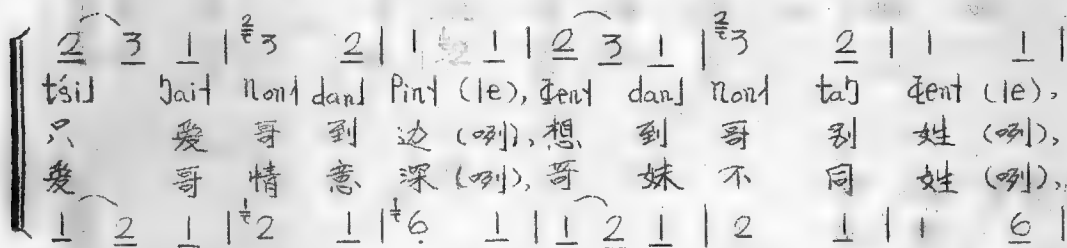 2 3 1 | 3 2 | 1 1 | 2 3 1 | 3 2 | 1 1 |
tśi˩ ŋai˧ non˧ dan˩ Pin˧ (le), dan˩ non˧ (le),
只 爱 哥 到 边 (咧), 想 到 哥 别 姓 (咧),
爱 哥 情 意 深 (咧), 哥 妹 不 同 姓 (咧),
1 2 1 | 2 1 | 6 1 | 1 2 1 | 2 1 | 1 6 |